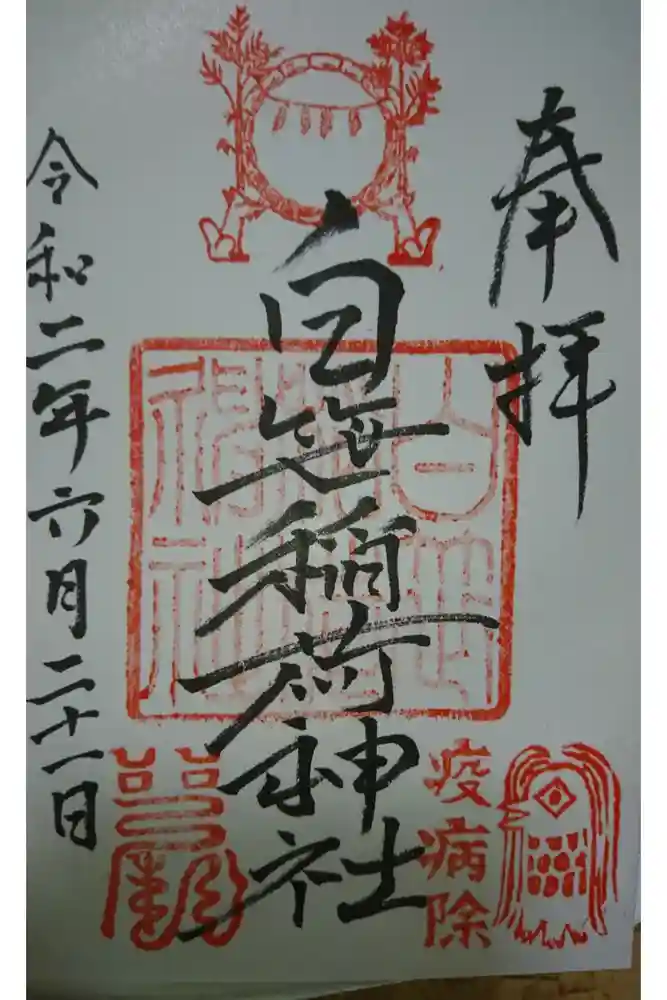 奉拝
疫病除
白笹稲荷神社
令和二年六月二十一日